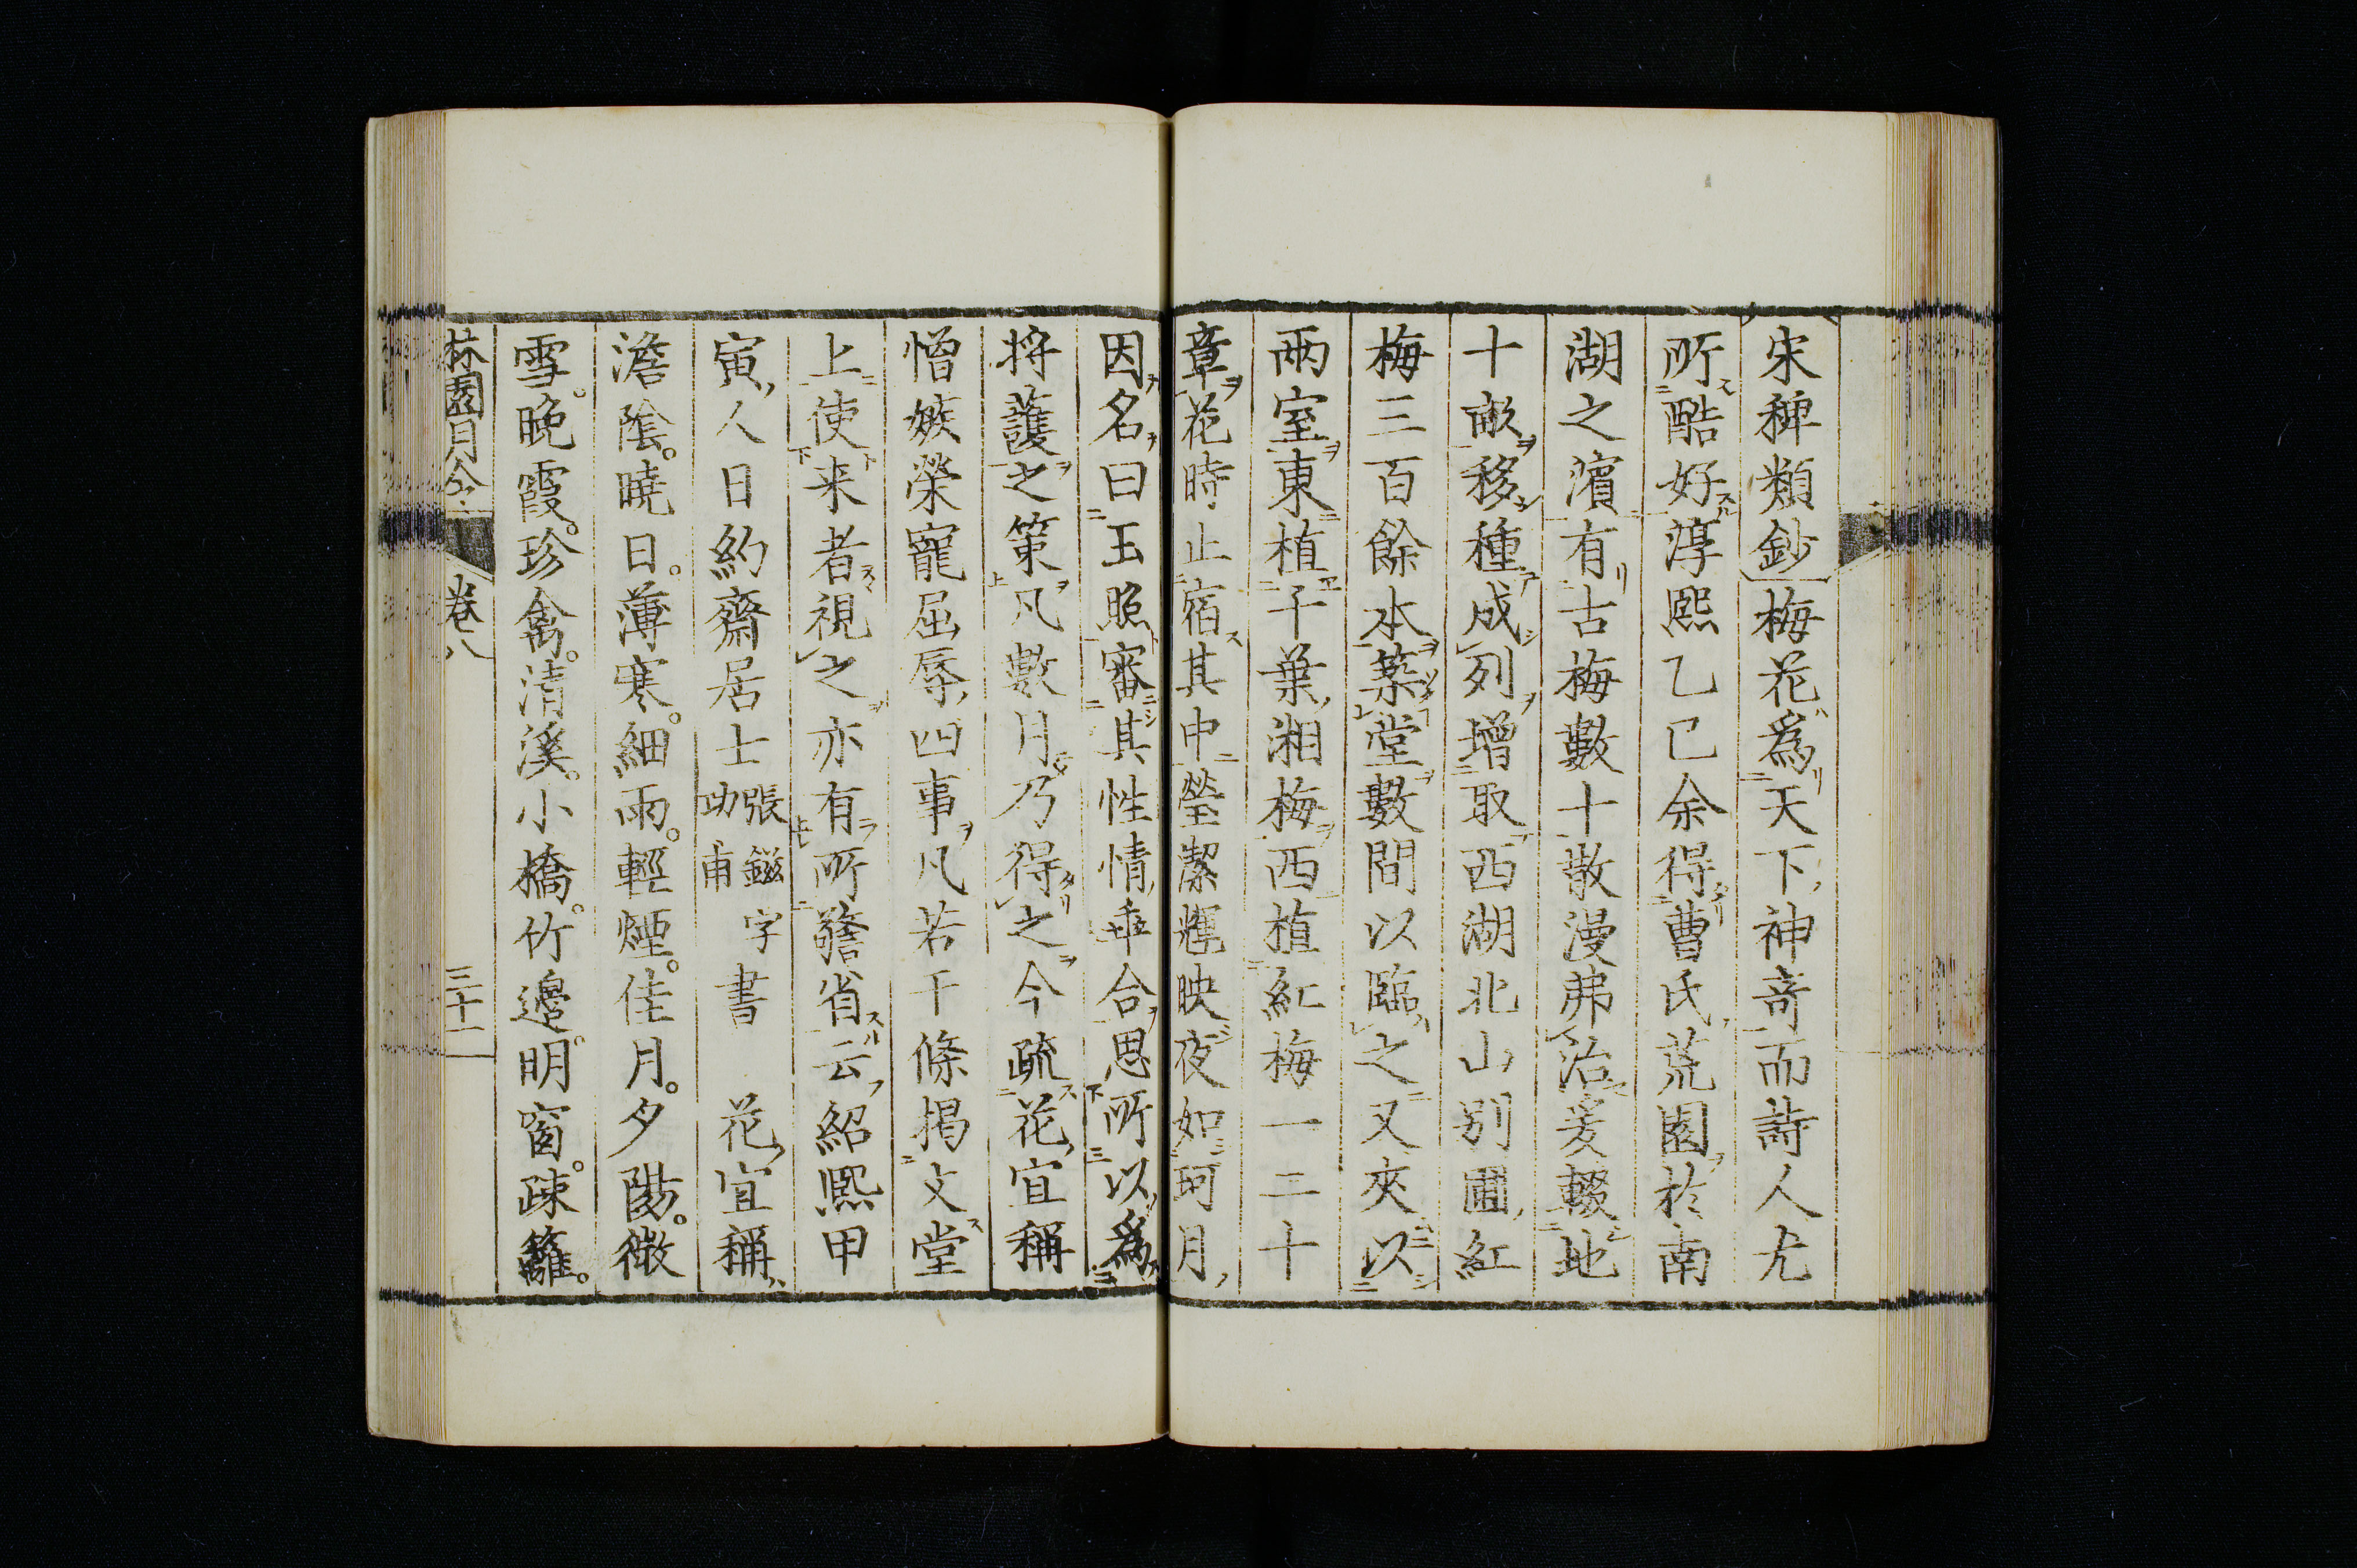 宋稗類鈔梅花爲天下神奇而詩人尤
所酷好淳熙乙巳余得曹氏荒園於南
湖之濱有古梅數十散漫弗治爰輟地
十畝移種成列增取西湖北山別圃紅
梅三百餘本築堂數間以臨之又夾以
兩室東植千葉湘梅西植紅梅一二十
章花時止宿其中瑩潔輝映夜如珂月
因名曰玉照審其性情乖合思所以爲
將護之策凡數月乃得之今疏花宜稱
憎嫉榮寵屈辱四事凡若干條揭文堂
上使来者視之亦有所警省云紹熙甲
寅人日約齋居士張鎡字功甫書 花宜稱
澹陰。曉日。薄寒。細雨。輕煙。佳月。夕陽。微
雪。晩霞。珍禽。清溪。小橋。竹邊。明窗。疎籬。
林園月令 卷八 三十一